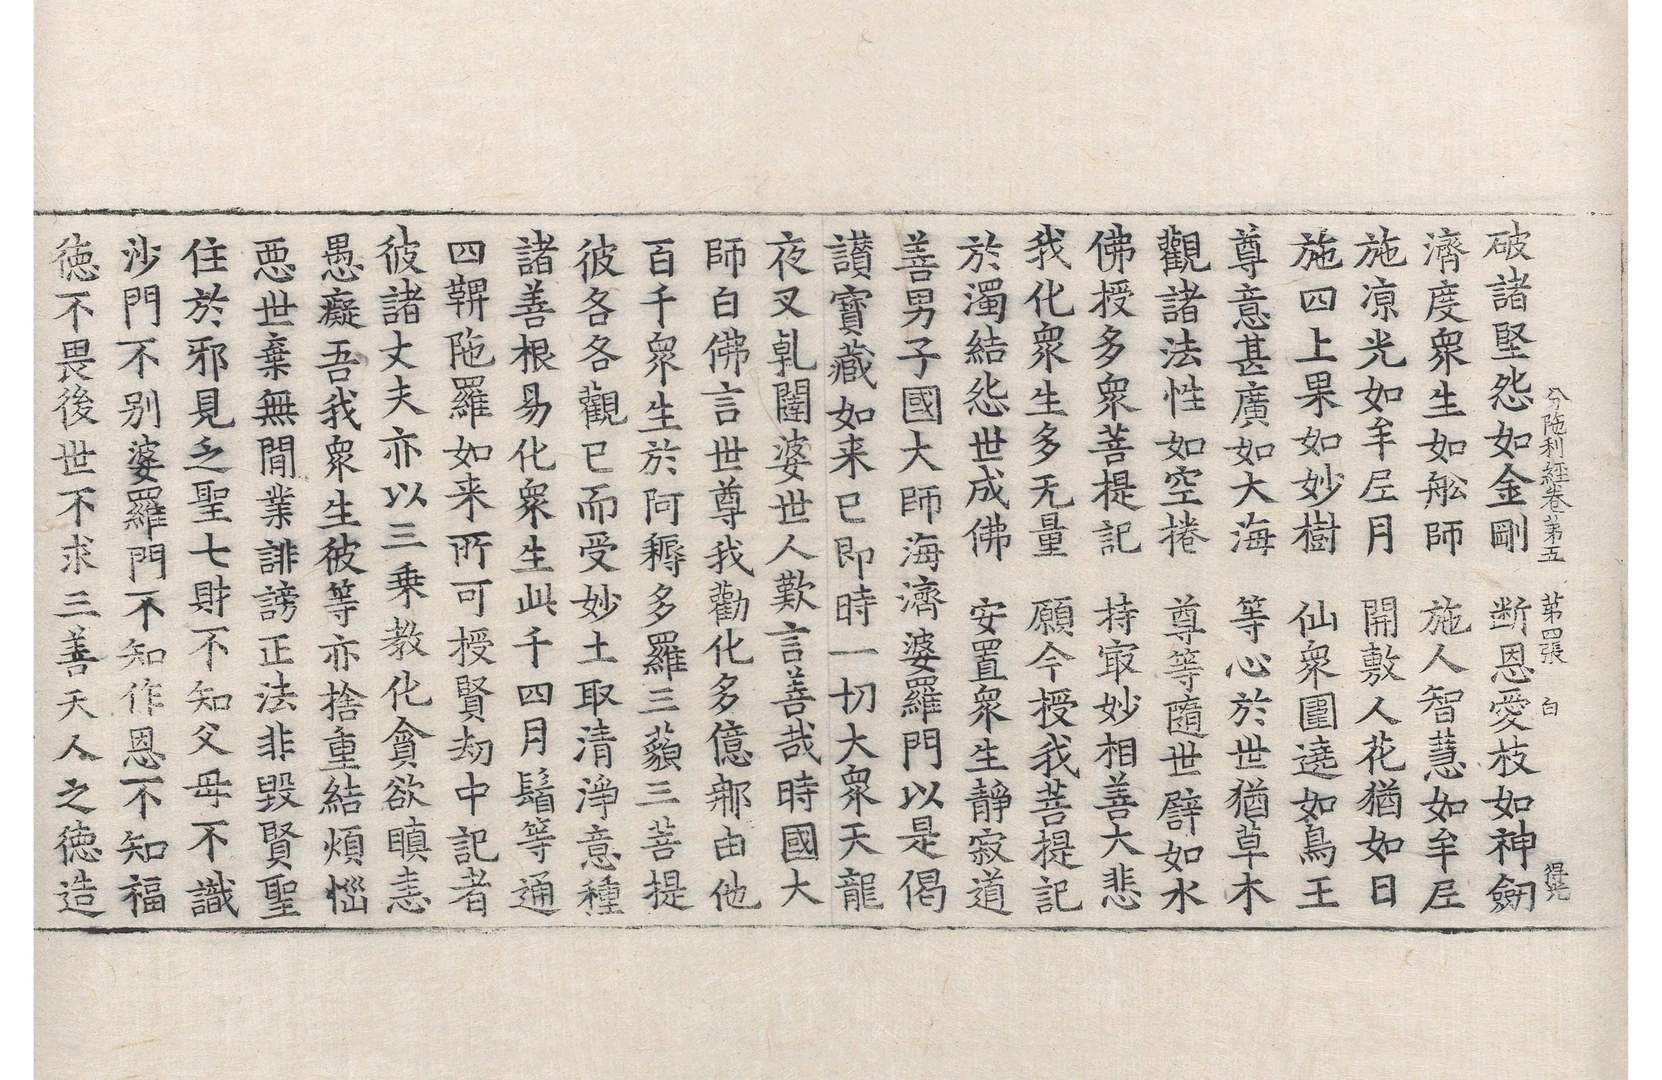 分陁利經卷第五　第四張　白　得光
破諸堅怨如金剛　断恩愛枝如神劒
濟度衆生如舩師　施人智慧如牟𡰱
施凉光如牟𡰱月　開敷人花猶如日
施四上果如妙樹　仙衆圍遶如鳥王
尊意甚廣如大海　等心於世猶草木
觀諸法性如空捲　尊等隨世譬如水
佛授多衆菩提記　持㝡妙相善大悲
我化衆生多无量　願今授我菩提記
於濁結怨世成佛　安置衆生靜寂道
善男子國大師海濟婆羅門以是偈
讃寶藏如来已即時一切大衆天龍
夜叉乹闥婆世人歎言善哉時國大
師白佛言世尊我勸化多億𨚗由他
百千衆生於阿耨多羅三藐三菩提
彼各各觀已而受妙土取清淨意種
諸善根易化衆生此千四月鬚等通
四鞞陁羅如来所可授賢劫中記者
彼諸丈夫亦以三乗教化貪欲瞋恚
愚癡吾我衆生彼等亦捨重結煩惱
悪世棄無間業誹謗正法非毀賢聖
住於邪見乏聖七財不知父母不識
沙門不別婆羅門不知作恩不知福
徳不畏後世不求三善天人之徳造